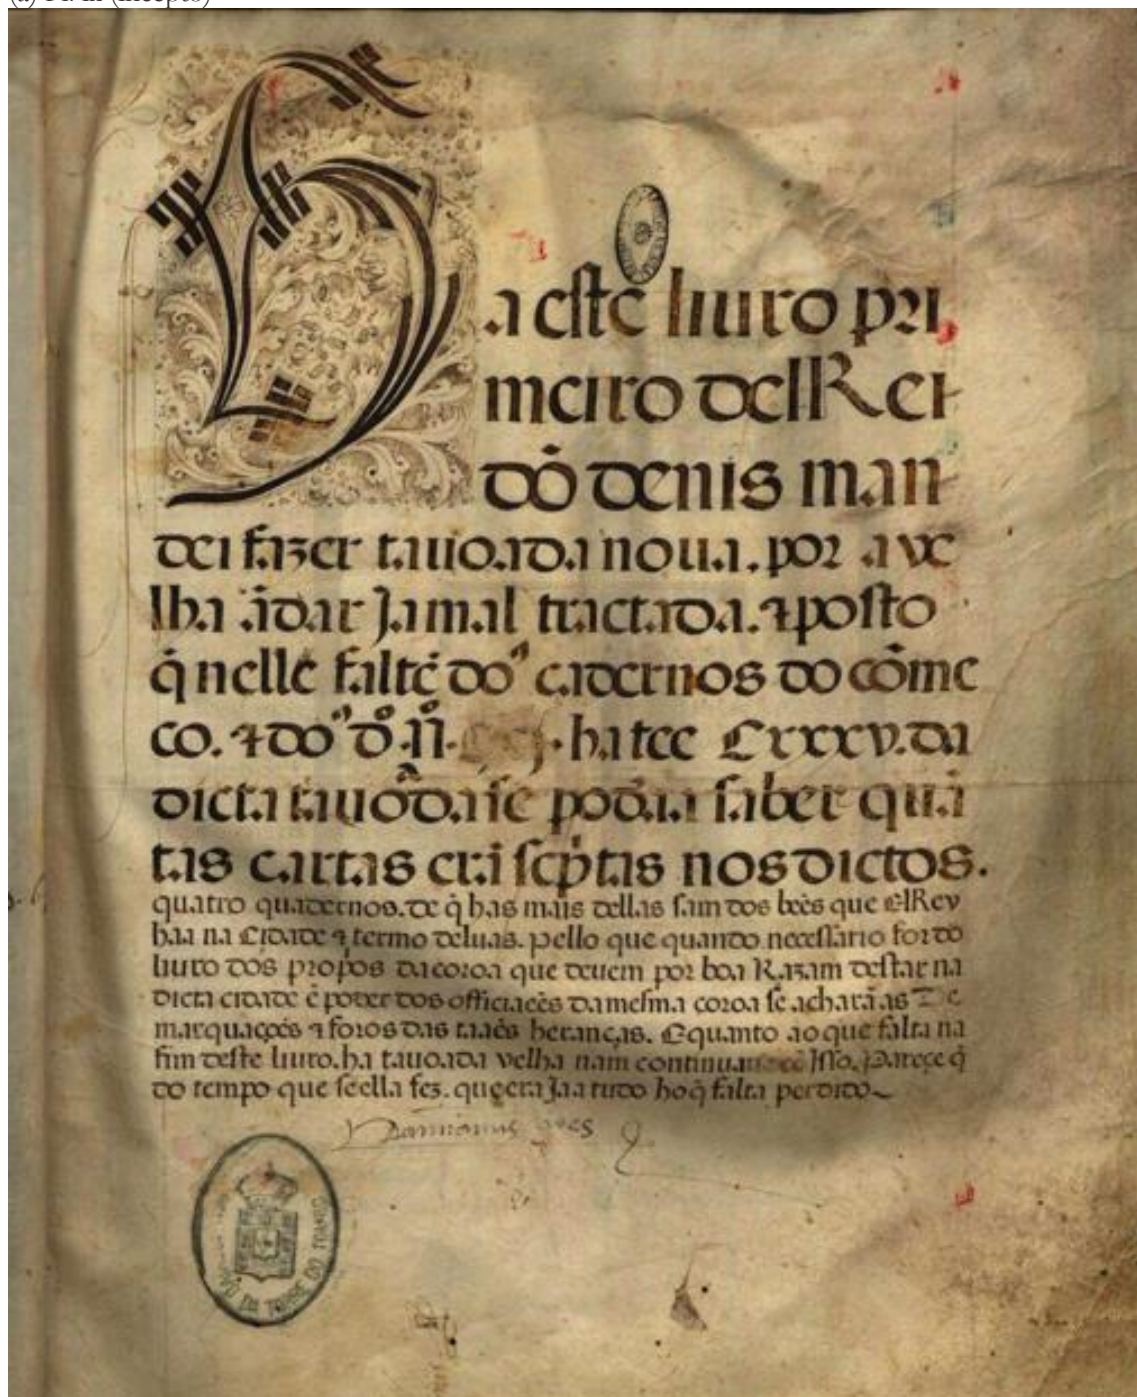 Ha este liuro pri
meiro delRei
dõ denis man
dei fazer tauoada noua. por a ve
lha ãdar Ja mal tractada. ⁊ posto
q̃ nelle faltẽ doˢ cadernos do cõme
co. ⁊ doˢ
ha tee Lxxxv. da
dicta tauoada se podia saber quã
tas cartas erã scp̃tas nos dictos.
quatro quadernos. de q̃ has mais dellas sam dos beẽs que elRey
haa na Cidade ⁊ termo deluas. pello que quando necessario for do
liuro dos propos da coroa que deuem por boa Razam destar na
dicta cidade ẽ poder dos officiaees da mesma coroa se acharãas De
marquaçoẽs ⁊ foros das taaẽs heranças. Equanto ao que falta na
fim deste liuro. ha tauoada velha nam Jsso. Pareçe q̃
do tempo que se ella fez. que era Jaa tudo ho q̃ falta perdido
Damianus goes
DA TORRE DO TOMBO